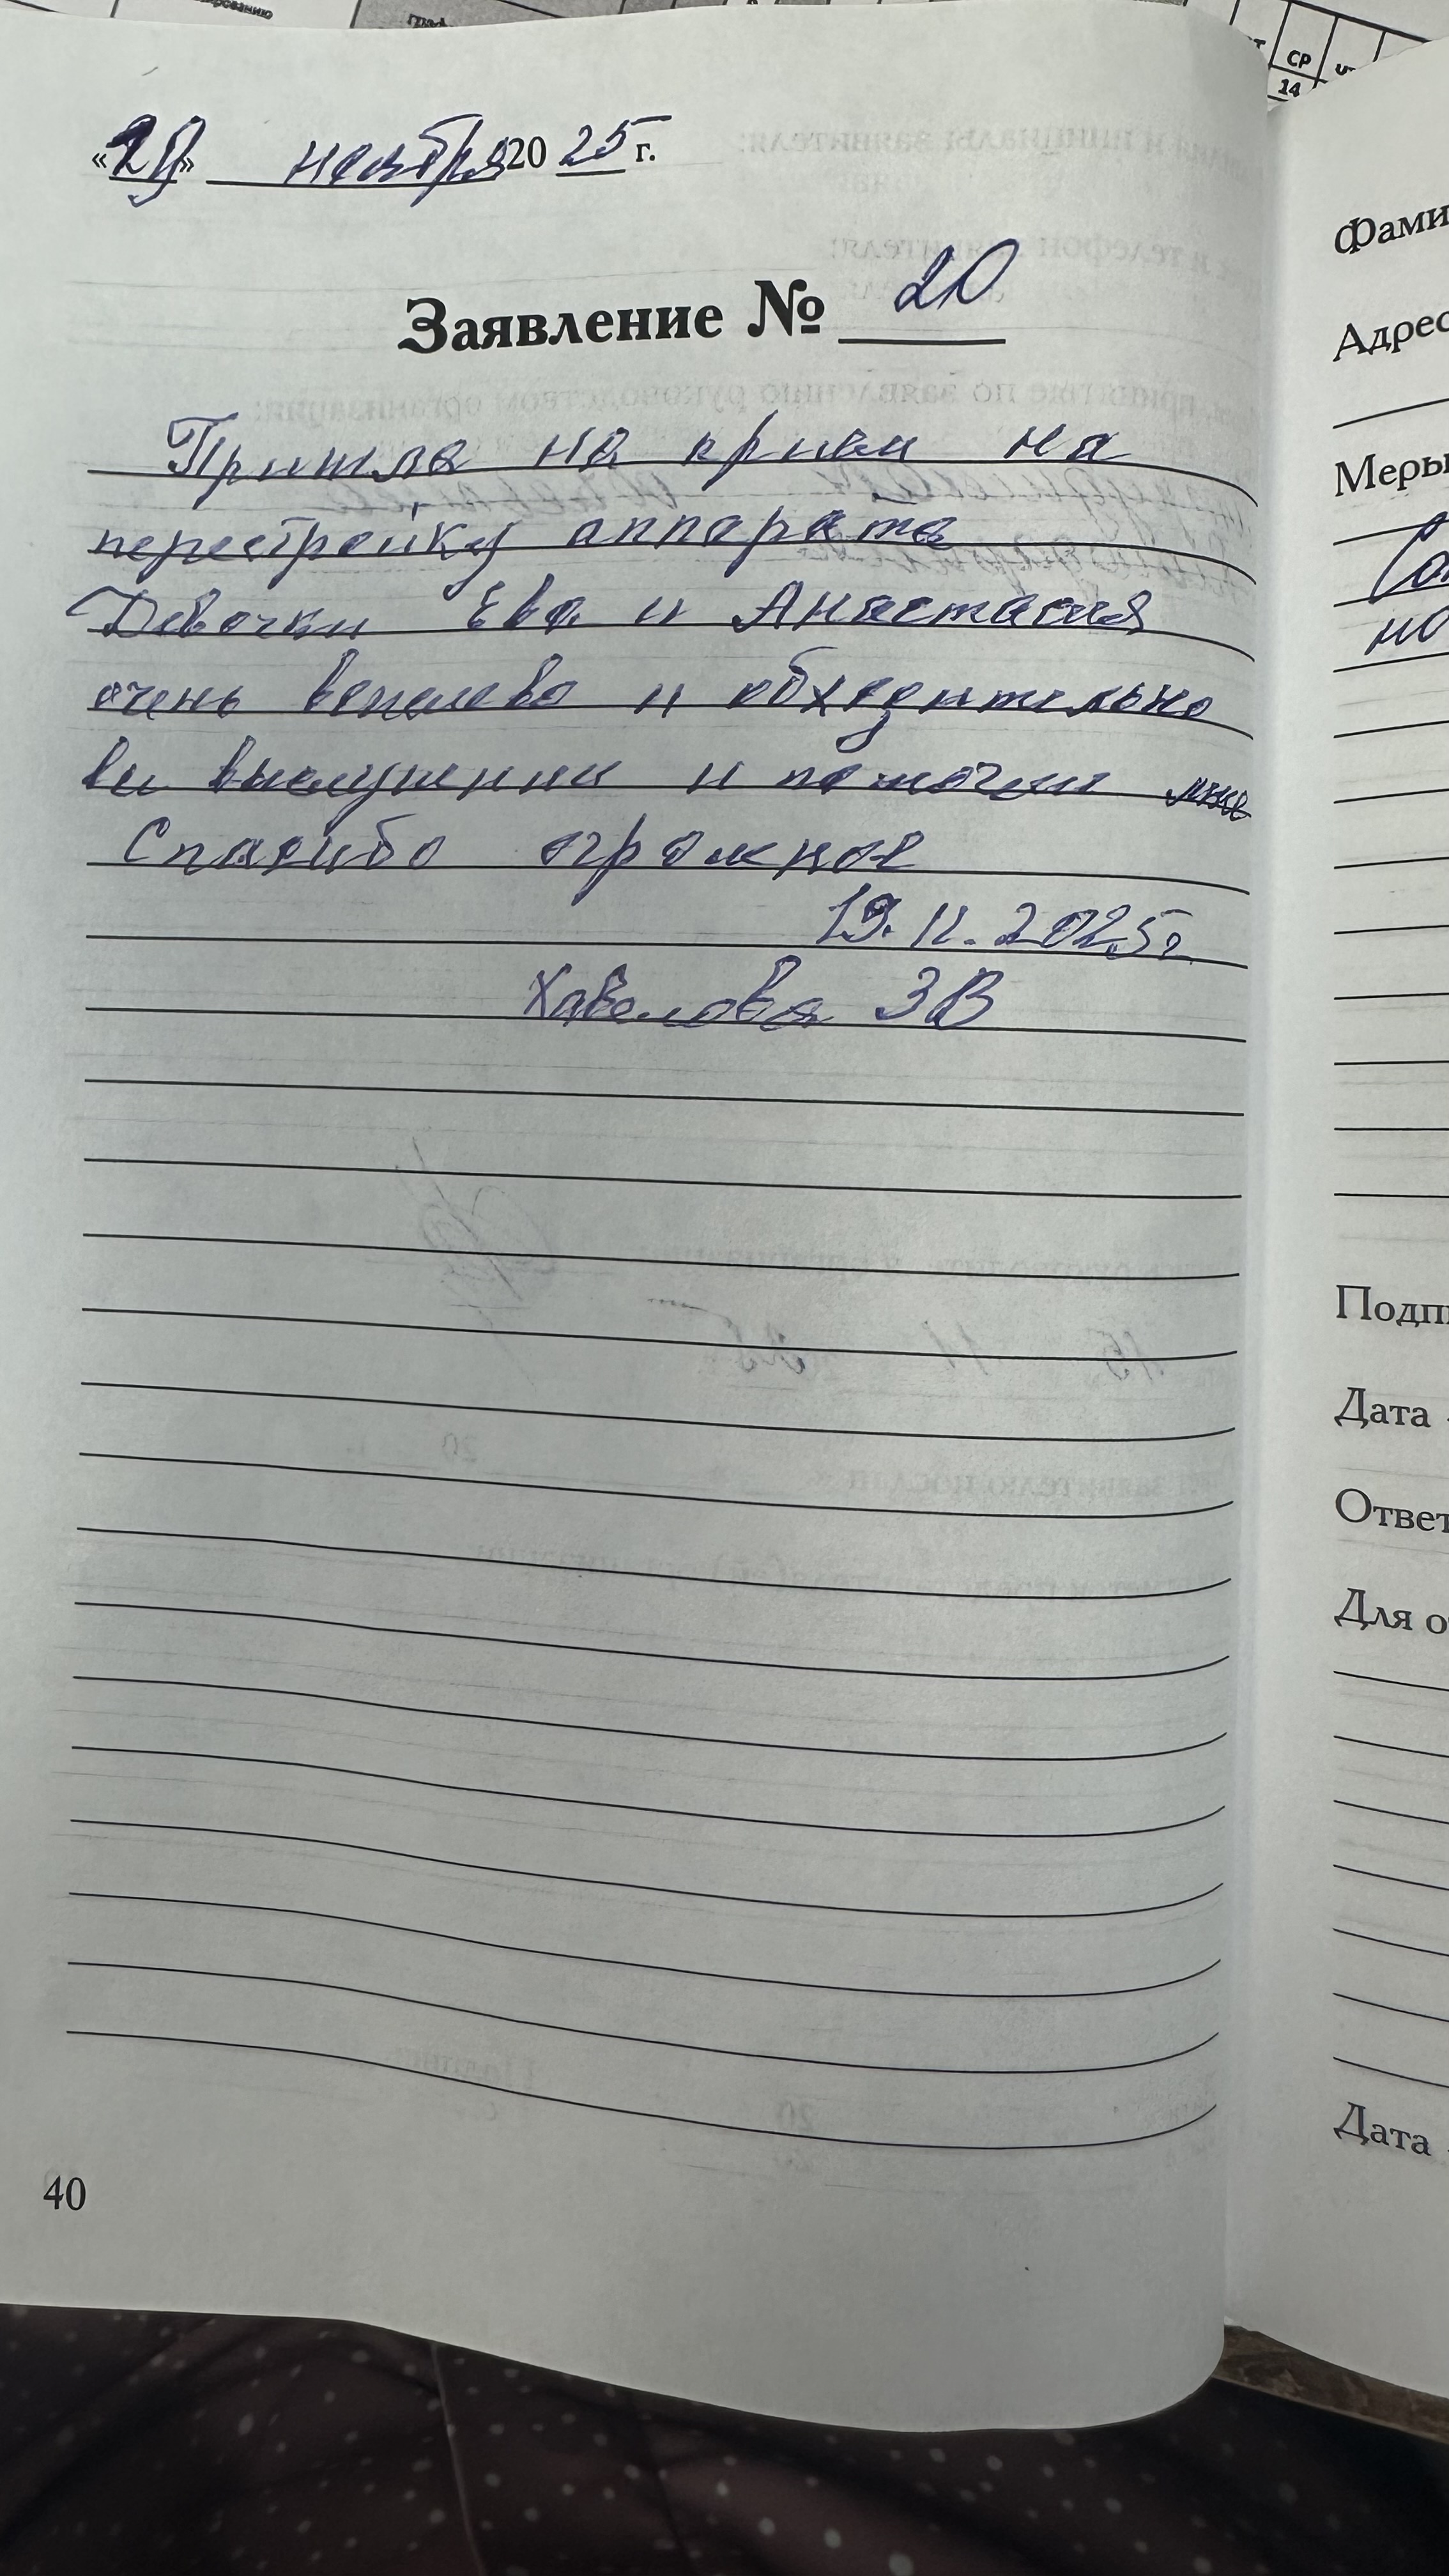 «19» ноября 2025 г.
Заявление № 20
Пришла на крики на
перестройку аппарата
Девочки Ева и Анастасия
очень вежлево и обходительно
вы выслушили и помогли мне
Спасибо огромное
19.11.2025г.
ЗВ
40
СР
14
Фами
Адрес
Меры
но
Подпи
Дата
Ответ
Для о
Дата